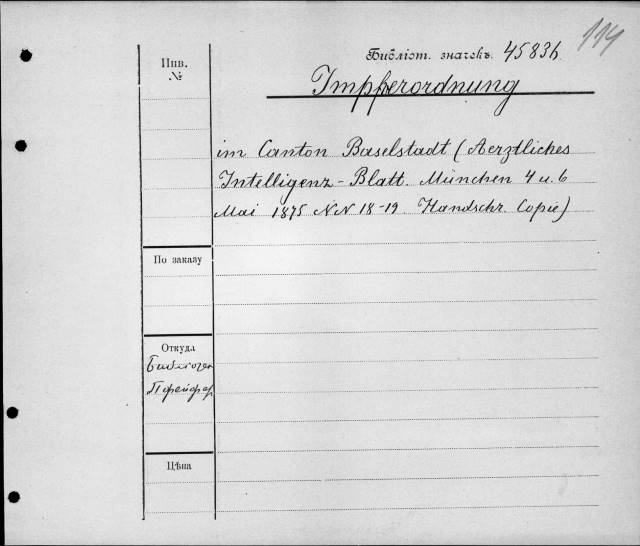 114
Библіот. значекъ. 45836
Impfverordnung
Инв.
№
im Canton Baselstadt (Aerztliches
Intelligenz-Blatt. München 4 u. 6
Mai 1875 NN 18-19. Handschr. Copie)
По заказу
Откуда
Библіотек
Пфейфер
Цѣна